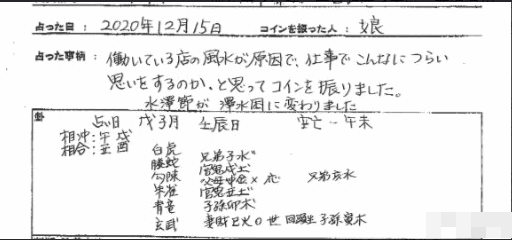 占った日：2020年12月15日 コインを振った人：娘
占った事柄：働いている店の風水が原因で、仕事でこんなにつらい
思いをするのか、と思ってコインを振りました。
水澤節が 澤水困に変わりました
占い日 戊子月 壬辰日 空亡－午未
相冲：午 戌
相合：丑 酉
白虎 兄弟子水
螣蛇 官鬼戌土
勾陳 父母申金 × 応 兄弟亥水
朱雀 官鬼丑土
青竜 子孫卯木
玄武 妻財巳火 〇 世 回頭生 子孫寅木